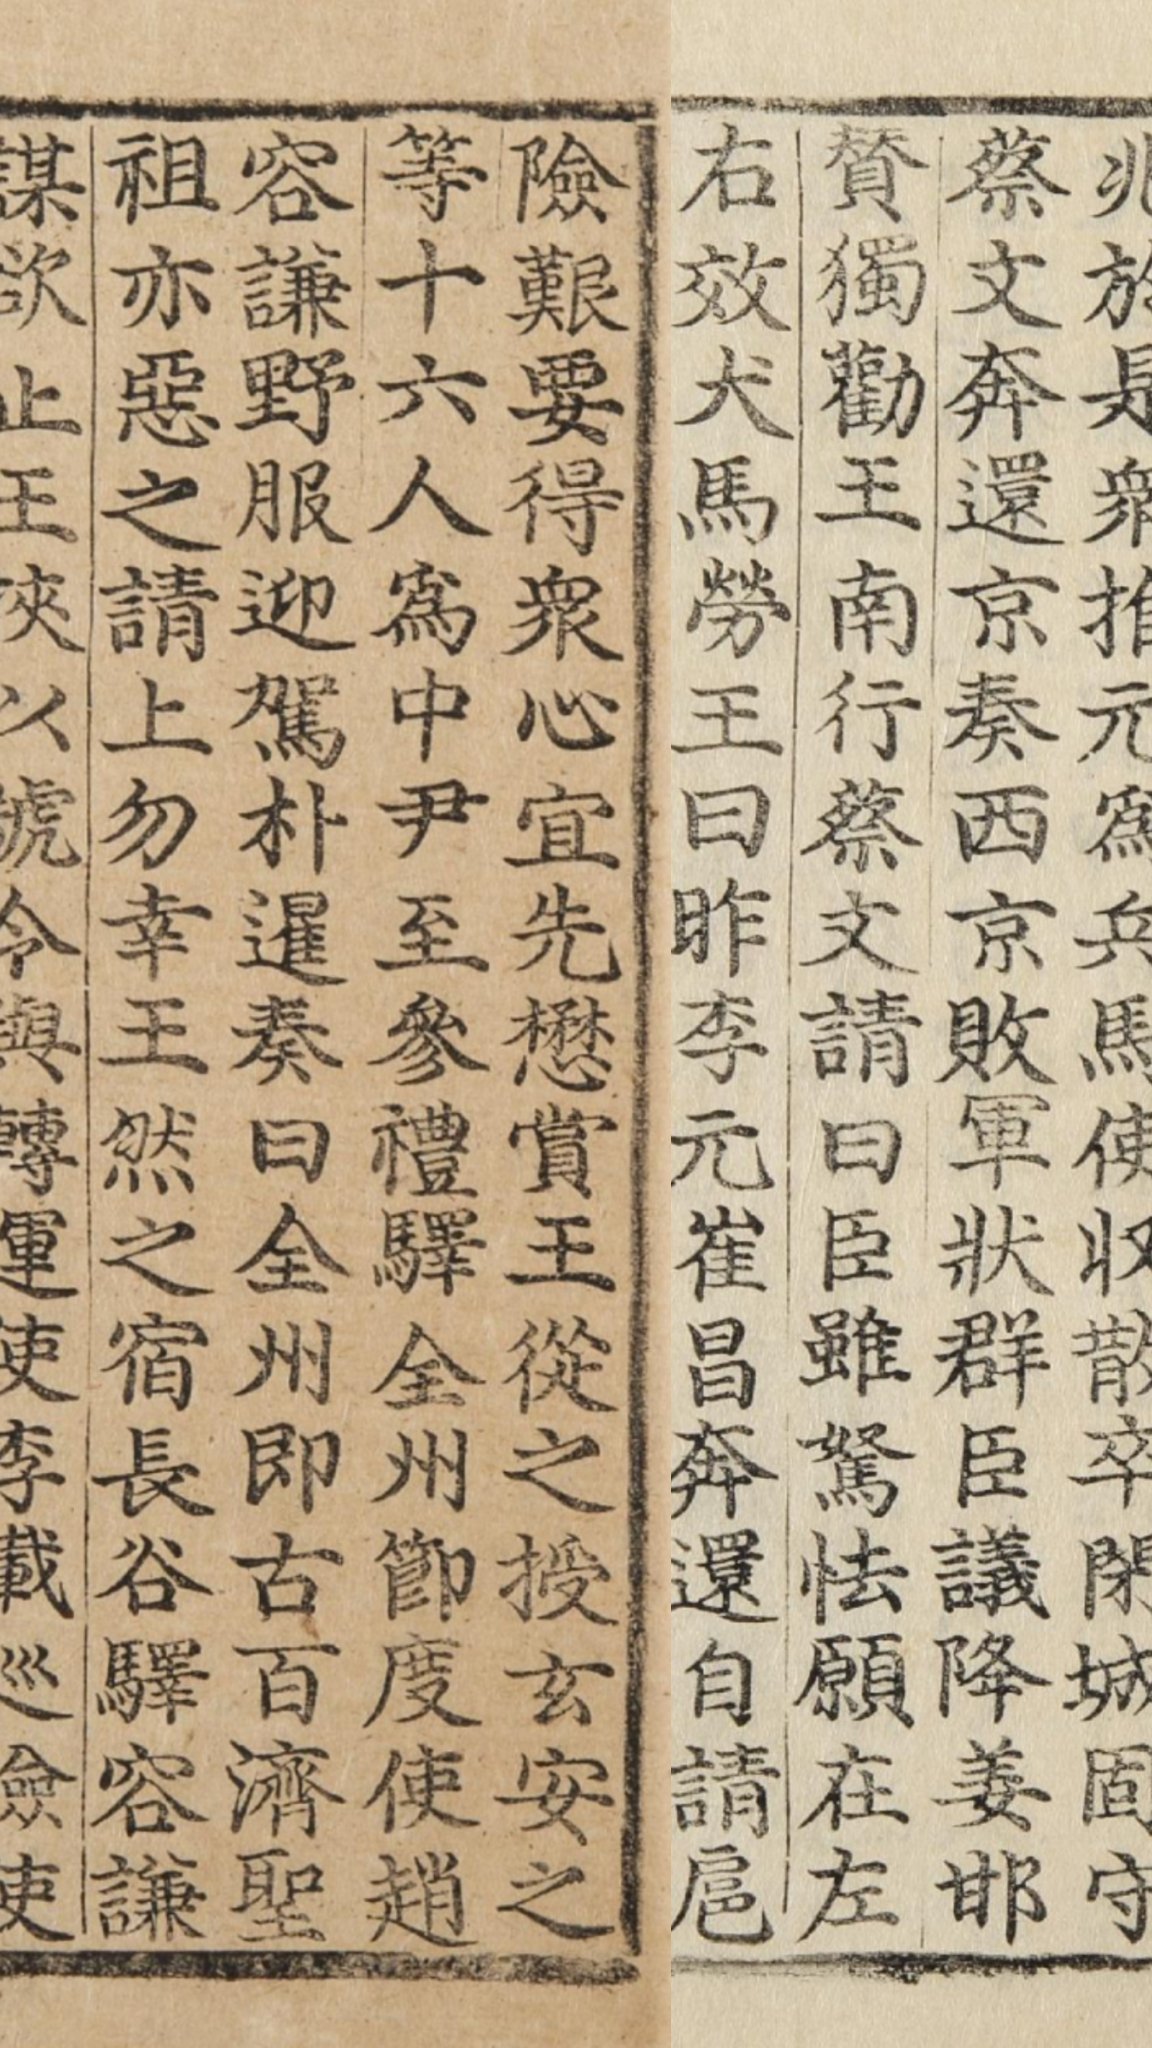 兆於是衆推元爲兵馬使收散卒閉城固守
蔡文奔還京奏西京敗軍狀群臣議降姜邯
贊獨勸王南行蔡文請曰臣雖駑怯願在左
右效犬馬勞王曰昨李元崔昌奔還自請扈
險艱要得衆心宜先懋賞王從之授玄安之
等十六人爲中尹至參禮驛全州節度使趙
容謙野服迎駕朴暹奏曰全州即古百濟聖
祖亦惡之請上勿幸王然之宿長谷驛容謙
謀欲止王挾以號令與轉運使李載巡檢使